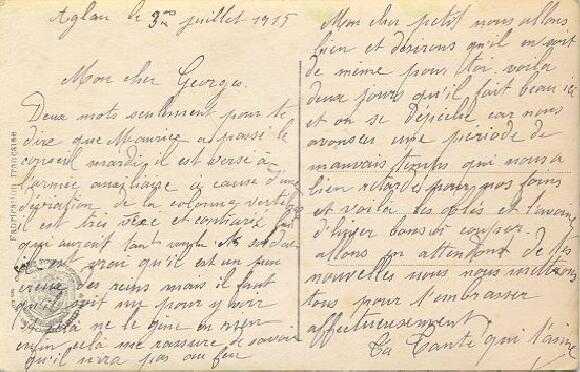 Aglan le 3 juillet 1915
Mon cher Georges.
Deux mots seulement pour te
dire que Maurice a passé le
conseil mardi, il est versé à
l'armée auxiliaire à cause d'une
déviation de la colonne vertébrale
il est très vexé et contrarié
qui aurait tant voulu être soldat
il est vrai qu'il est un peu
creux des reins mais il faut
qu'il soit nu pour y voir
cela ne le gêne en rien
enfin cela me rassure de savoir
qu'il n'ira pas au feu
Mon cher petit nous allons
bien et désirons qu'il en soit
de même pour toi, voila
deux jours qu'il fait beau ici
et on se dépêche car nous
avons eu une période de
mauvais temps qui nous a
bien retardés pour nos foins
et voilà les blés et l'avoine
d'hiver bons à couper.
allons en attendant de tes
nouvelles nous nous mettons
tous pour t'embrasser
affectueusement
Ta Tante qui t'aime
Fabrication Française